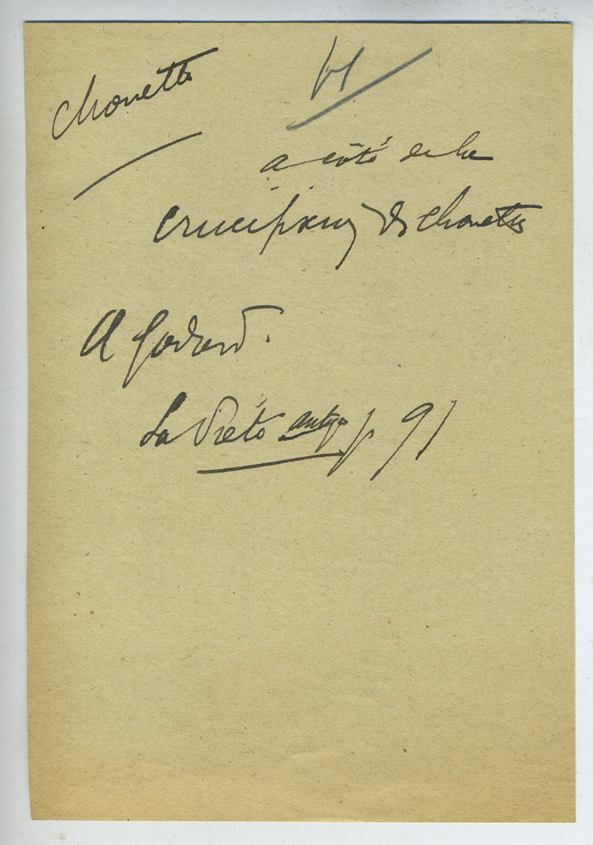 chouette
a côté de la
crucifixion des chouettes
A Godard.
La Piété antiq p 91